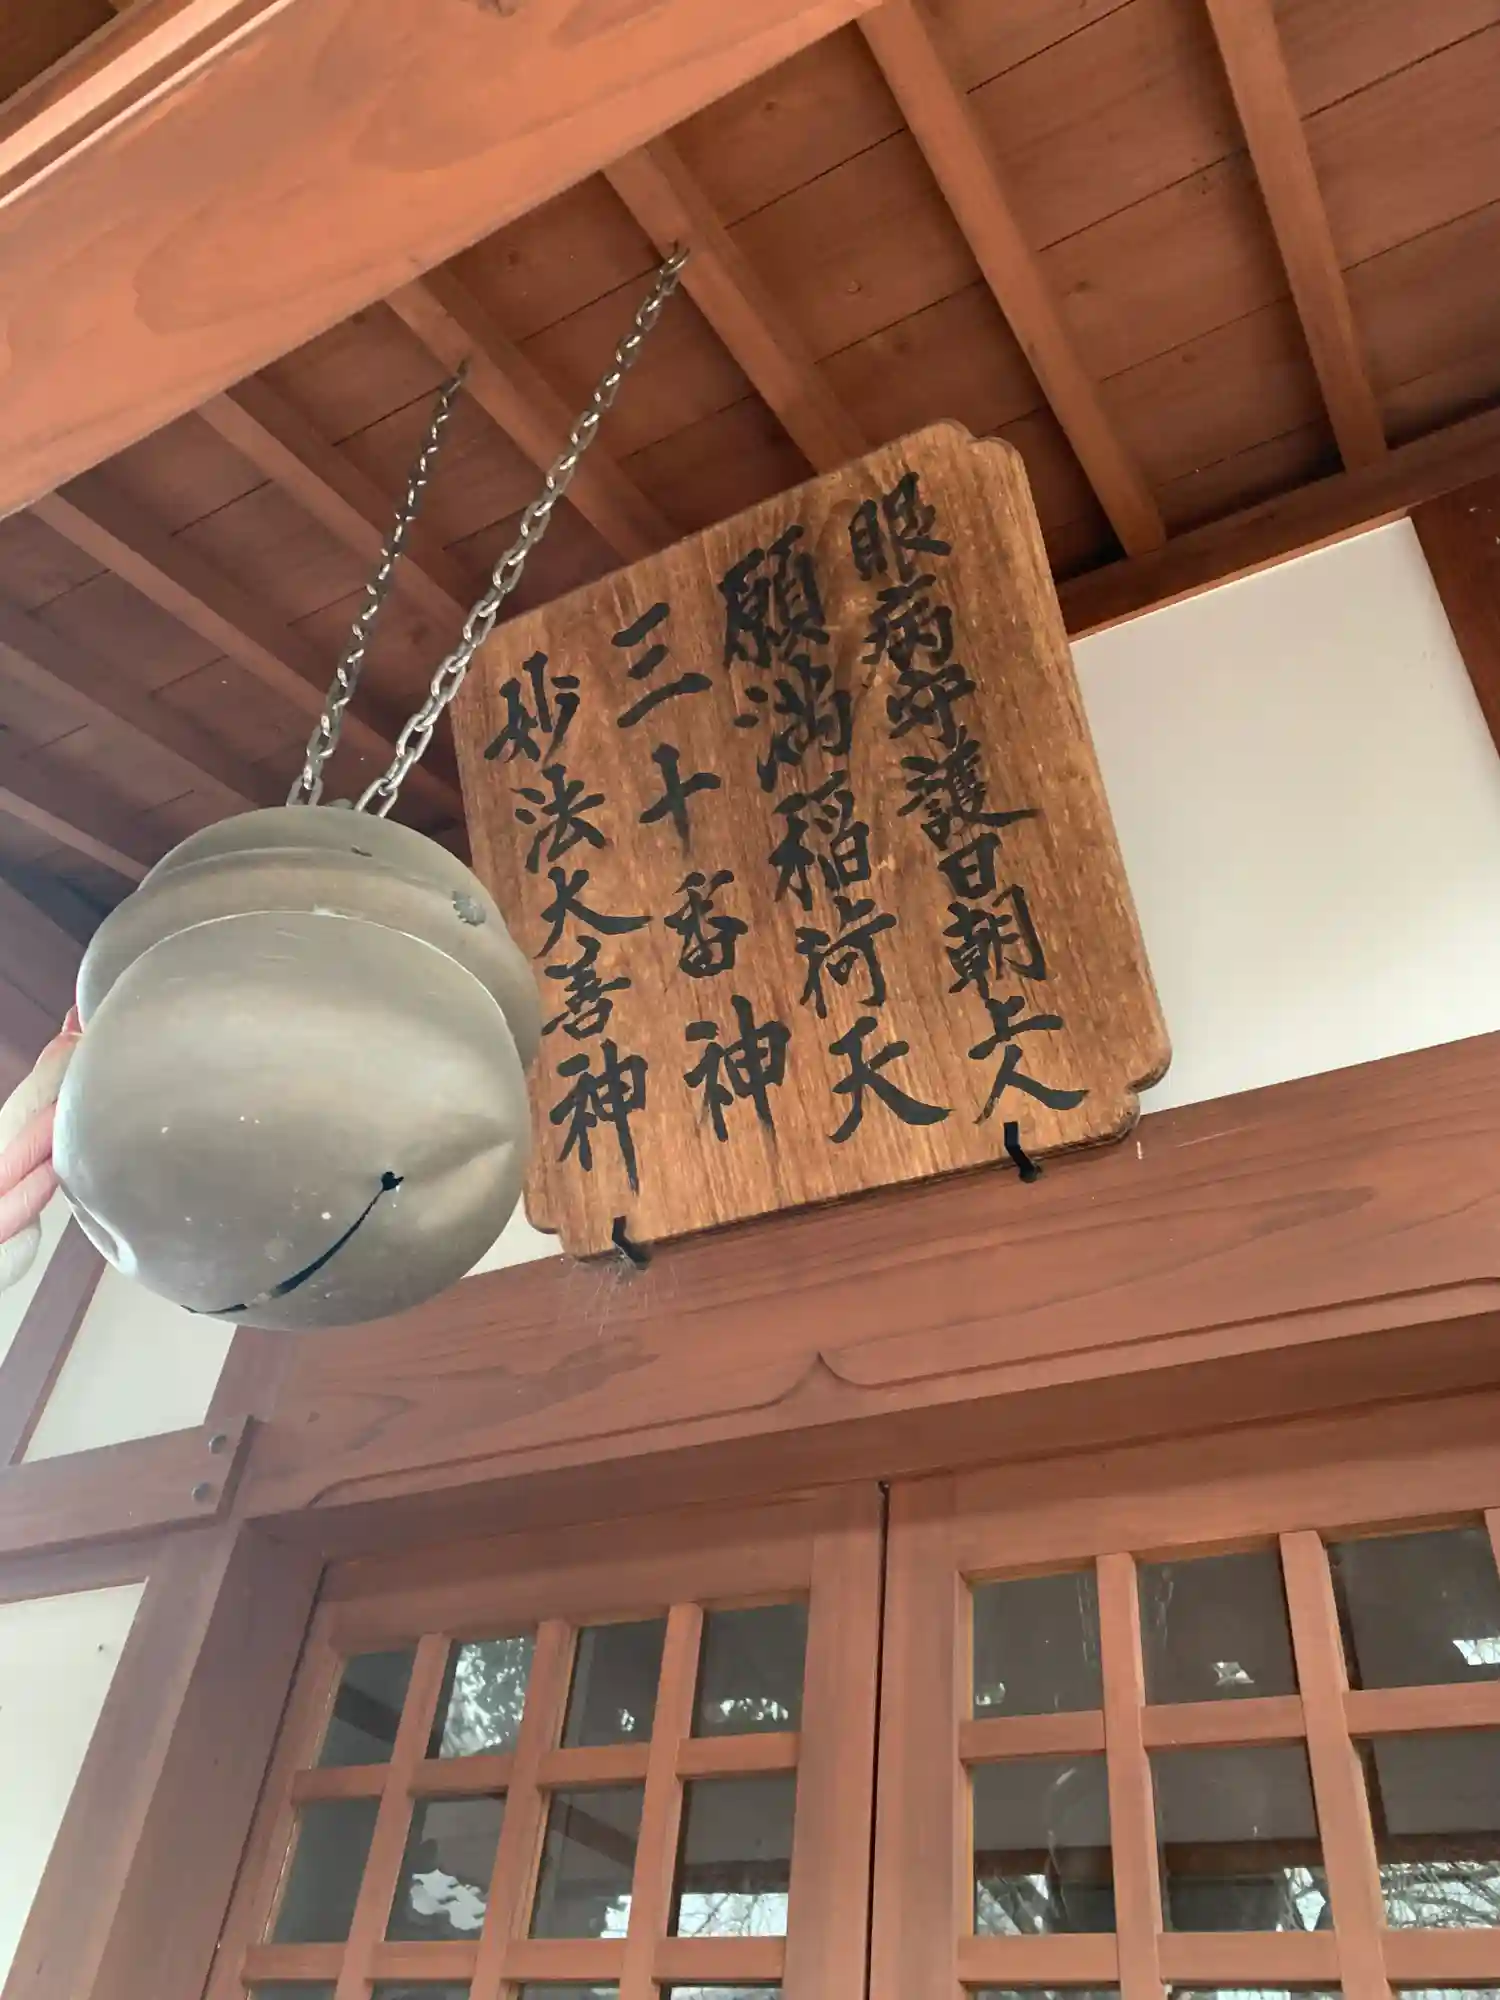 眼病守護日朝上人
願満稲荷天
三十番神
妙法大善神